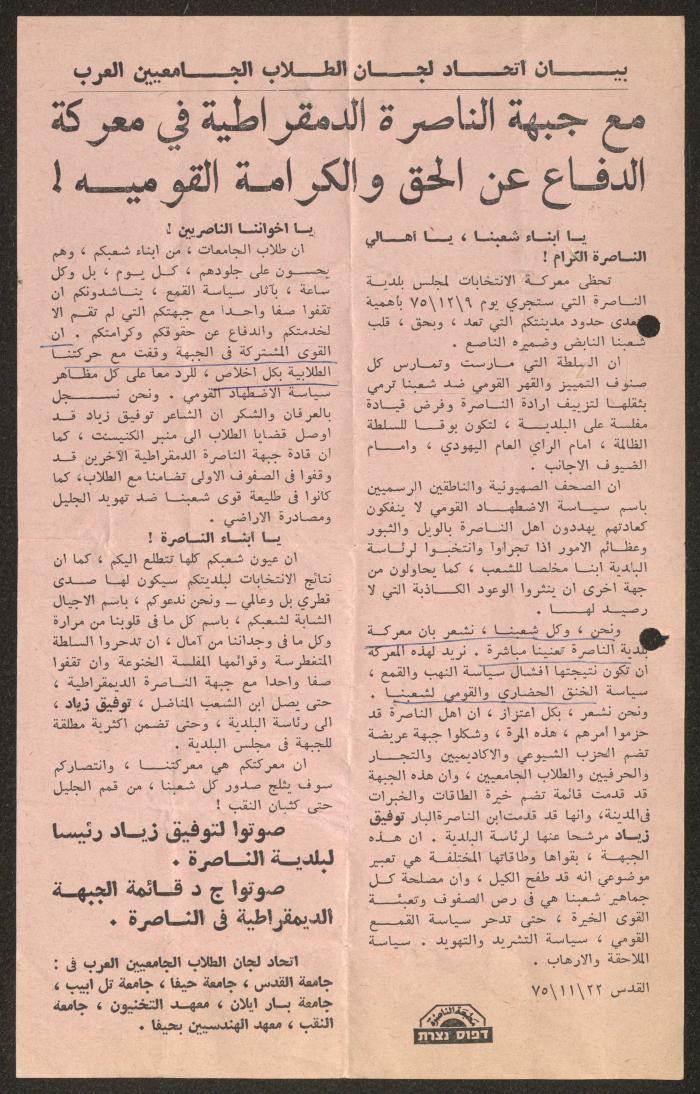 بيان اتحاد لجان الطلاب الجامعيين العرب
مع جبهة الناصرة الدمقراطية في معركة
الدفاع عن الحق والكرامة القوميه !
يا ابناء شعبنا ، يا أهالي
الناصرة الكرام !
تحظى معركة الانتخابات لمجلس بلدية
الناصرة التي ستجري يوم ٩\١٢\٧٥ باهمية
تتعدى حدود مدينتكم التي تعد ، وبحق ، قلب
شعبنا النابض وضميره الناصع .
ان السلطة التي مارست وتمارس كل
صنوف التمييز والقهر القومي ضد شعبنا ترمي
بثقلها لتزييف ارادة الناصرة وفرض قيادة
مفلسة على البلدية ، لتكون بوقا للسلطة
الظالمة ، امام الراي العام اليهودي ، وامام
الضيوف الاجانب .
ان الصحف الصهيونية والناطقين الرسميين
باسم سياسة الاضطهاد القومي لا ينفكون
كعادتهم يهددون اهل الناصرة بالويل والثبور
وعظائم الامور اذا تجراوا وانتخبوا لرئاسة
البلدية ابنا مخلصا للشعب ، كما يحاولون من
جهة اخرى ان ينثروا الوعود الكاذبة التي لا
رصيد لها .
ونحن ، وكل شعبنا ، نشعر بان معركة
بلدية الناصرة تعنينا مباشرة . نريد لهذه المعركة
ان تكون نتيجتها افشال سياسة النهب والقمع ،
سياسة الخنق الحضاري والقومي لشعبنا .
ونحن نشعر ، بكل اعتزاز ، ان اهل الناصرة قد
حزموا امرهم ، هذه المرة ، وشكلوا جبهة عريضة
تضم الحزب الشيوعي والاكاديميين والتجار
والحرفيين والطلاب الجامعيين ، وان هذه الجبهة
قد قدمت قائمة تضم خيرة الطاقات والخبرات
في المدينة، وانها قد قدمت ابن الناصرة البار توفيق
زياد مرشحا عنها لرئاسة البلدية . ان هذه
الجبهة ، بقواها وطاقاتها المختلفة هي تعبير
موضوعي انه قد طفح الكيل ، وان مصلحة كل
جماهير شعبنا هي في رص الصفوف وتعبئة
القوى الخيرة ، حتى تدحر سياسة القمع
القومي ، سياسة التشريد والتهويد . سياسة
الملاحقة والارهاب .
القدس ٢٢\١١\٧٥
يا اخواننا الناصريين !
ان طلاب الجامعات ، من ابناء شعبكم ، وهم
يحسون على جلودهم ، كل يوم ، بل وكل
ساعة ، بآثار سياسة القمع ، يناشدونكم ان
تقفوا صفا واحدا مع جبهتكم التي لم تقم الا
لخدمتكم والدفاع عن حقوقكم وكرامتكم . ان
القوى المشتركة في الجبهة وقفت مع حركتنا
الطلابية بكل اخلاص ، للرد معا على كل مظاهر
سياسة الاضطهاد القومي . ونحن نسجل
بالعرفان والشكر ان الشاعر توفيق زياد قد
اوصل قضايا الطلاب الى منبر الكنيست ، كما
ان قادة جبهة الناصرة الدمقراطية الآخرين قد
وقفوا في الصفوف الاولى تضامنا مع الطلاب، كما
كانوا في طليعة قوى شعبنا ضد تهويد الجليل
ومصادرة الاراضي .
يا ابناء الناصرة !
ان عيون شعبكم كلها تتطلع اليكم ، كما ان
نتائج الانتخابات لبلديتكم سيكون لها صدى
قطري بل وعالمي ــ ونحن ندعوكم ، باسم الاجيال
الشابة لشعبكم ، باسم كل ما في قلوبنا من مرارة
وكل ما في وجداننا من آمال ، ان تدحروا السلطة
المتغطرسة وقوائمها المفلسة الخنوعة وان تقفوا
صفا واحدا مع جبهة الناصرة الديمقراطية ،
حتى يصل ابن الشعب المناضل ، توفيق زياد ،
الى رئاسة البلدية ، وحتى تضمن اكثرية مطلقة
للجبهة في مجلس البلدية .
ان معركتكم هي معركتنا ، وانتصاركم
سوف يثلج صدور كل شعبنا ، من قمم الجليل
حتى كثبان النقب !
صوتوا لتوفيق زياد رئيسا
لبلدية الناصرة .
صوتوا ج د قائمة الجبهة
الديمقراطية في الناصرة .
اتحاد لجان الطلاب الجامعيين العرب في :
جامعة القدس ، جامعة حيفا ، جامعة تل ابيب ،
جامعة بار ايلان ، معهد التخنيون ، جامعة
النقب ، معهد الهندسيين بحيفا .
مطبعة الناصرة
דפוס נצרת